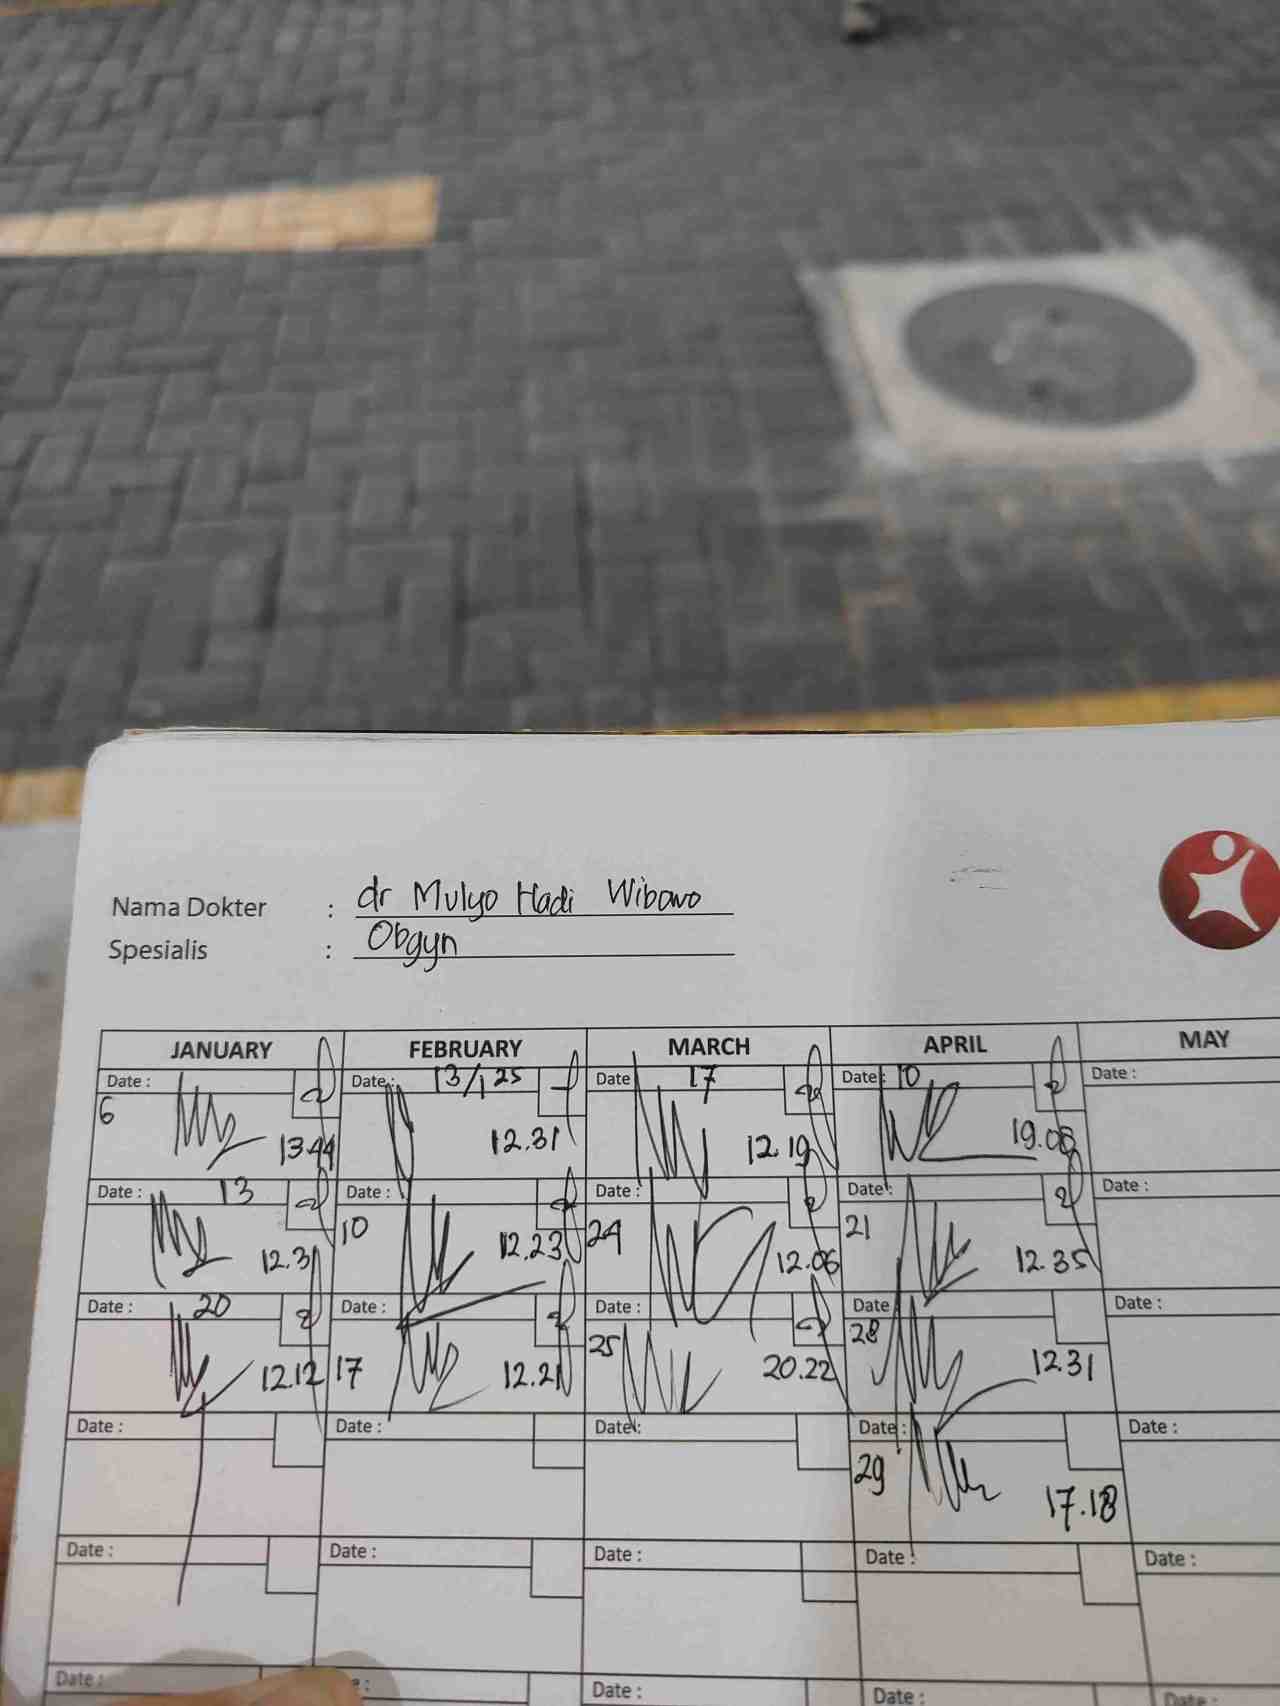 Nama Dokter : dr Mulyo Hadi Wibowo
Spesialis : Obgyn
JANUARY FEBRUARY MARCH APRIL MAY
Date : Date : 13/1 25 Date 17 Date : 10 Date :
6 13.44 12.31 12.19 19.08
Date : 13 Date : Date : Date : Date :
12.31 10 12.23 24 12.06 21 12.35
Date : 20 Date : Date : Date Date :
12.12 17 12.21 25 20.22 28 12.31
Date : Date : Date : Date : Date :
29 17.18
Date : Date : Date : Date : Date :
Date : Date : Date : Date :